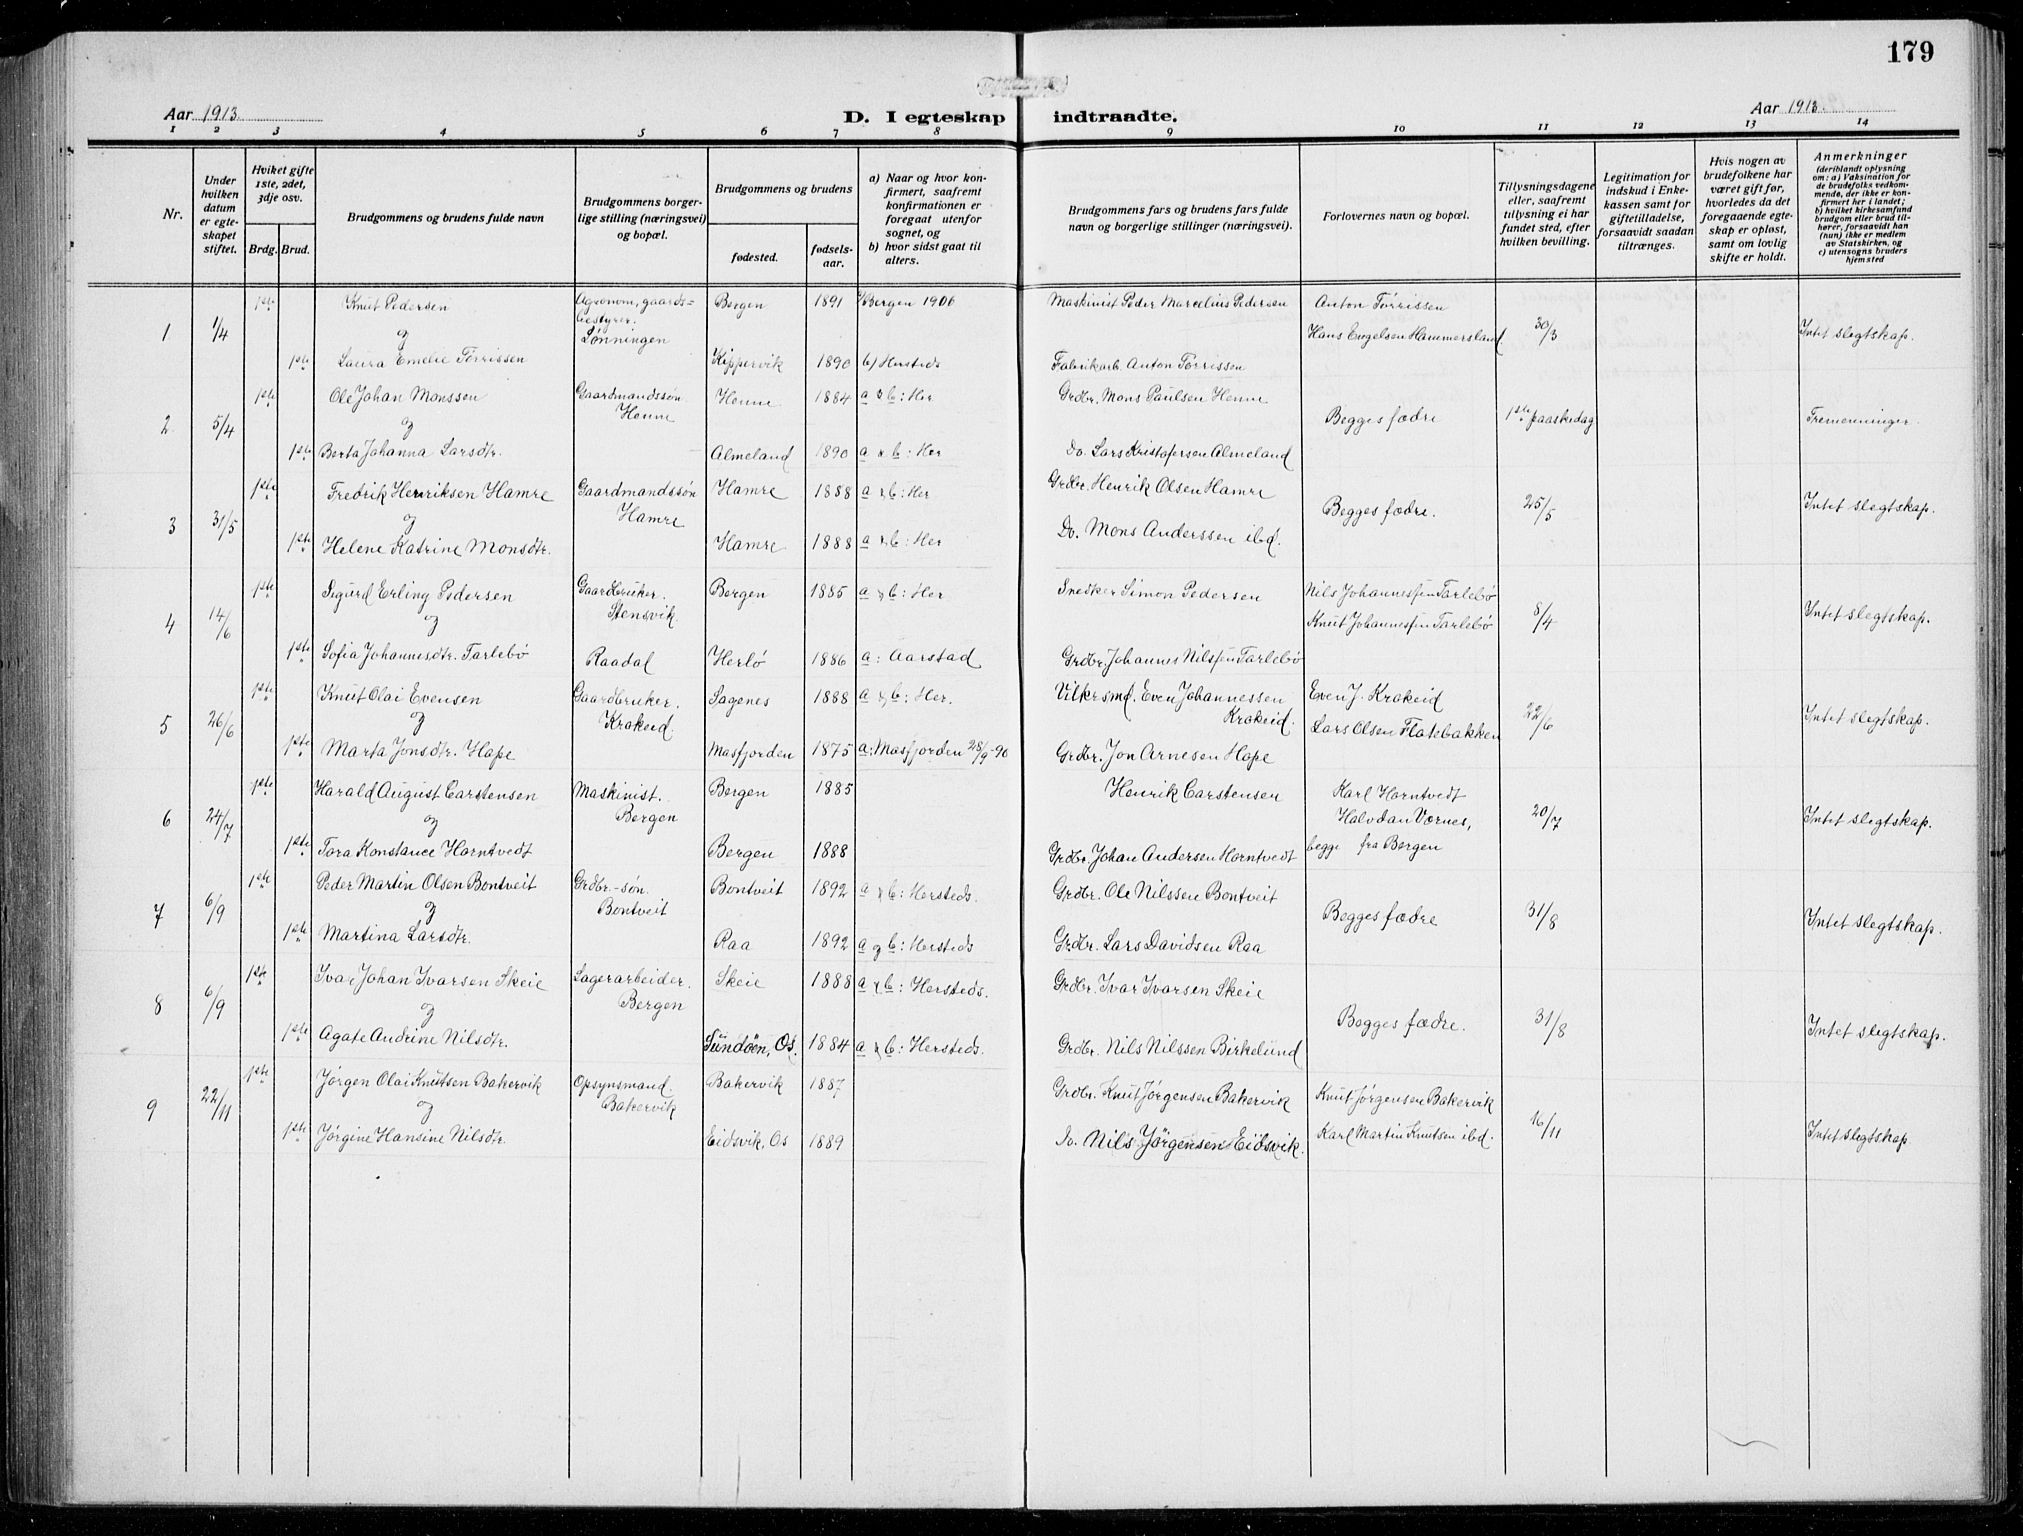 179
Aar 1913.
D. I egteskap indtraadte.
Aar 1913.
1 2 3 4 5 6 7 8 9 10 11 12 13 14
Nr.
Under hvilken datum er egteskapet stiftet.
Hviket gifte 1ste, 2det, 3dje osv.
Brdg. Brud.
Brudgommens og brudens fulde navn
Brudgommens borgerlige stilling (næringsvei) og bopæl.
Brudgommens og brudens
fødested.
fødselsaar.
a) Naar og hvor konfirmert, saafremt konfirmationen er foregaat utenfor sognet, og
b) hvor sidst gaat til alters.
Brudgommens fars og brudens fars fulde navn og borgerlige stillinger (næringsvei).
Forlovernes navn og bopæl.
Tillysningsdagene eller, saafremt tillysning ei har fundet sted, efter hvilken bevilling.
Legitimation for indskud i Enkekassen samt for giftetilladelse, forsaavidt saadan tiltrænges.
Hvis nogen av brudefolkene har været gift før, hvorledes da det foregaaende egteskap er opløst, samt om lovlig skifte er holdt.
Anmerkninger (deriblandt oplysning om: a) Vaksination for de brudefolks vedkommende, der ikke er konfirmert her i landet; b) hvilket kirkesamfund brudgom eller brud tilhører, forsaavidt han (hun) ikke er medlem av Statskirken, og c) utensogns bruders hjemsted
1 1/4 1ste Knut Pedersen Agronom, gaardsbestyrer. Lønningen Bergen 1891 a/ Bergen 1906 Maskinist Peder Marcelius Pedersen Anton Tørrissen 30/3 Intet slegtskap.
og Hans Engelsen Hammersland
1ste Laura Emelie Tørrissen Kippervik 1890 b/ Hersteds Fabrikarb. Anton Tørrissen
2 5/4 1ste Ole Johan Monssen Gaardmandssøn Henne Henne 1884 a & b: Her Grdbr. Mons Paulsen Henne Begges fædre 1ste paaskedag Tremenninger.
og
1ste Berta Johanna Larsdtr. Almeland 1890 a & b: Her Do. Lars Kristofersen Almeland
3 31/5 1ste Fredrik Henriksen Hamre Gaardmandssøn Hamre Hamre 1888 a & b: Her Grdbr. Henrik Olsen Hamre Begges fædre. 25/5 Intet slegtskap.
og
1ste Helene Katrine Monsdtr. Hamre 1888 a & b: Her Do. Mons Anderssen ibd.
4 14/6 1ste Sigurd Erling Pedersen Gaardbruker. Stensvik. Bergen 1885 a & b: Her Snedker Simon Pedersen Nils Johannessen Tarlebø 8/4 Intet slegtskap.
og Knut Johannessen Tarlebø
1ste Sofia Johannesdtr. Tarlebø Raadal Herlø 1886 a: Aarstad Grdbr. Johannes Nilssen Tarlebø
5 26/6 1ste Knut Olai Evensen Gaardbruker. Krakeid. Sagenes 1888 a & b: Her. Vilkrsmd. Even Johannessen Krakeid. Even J. Krakeid 22/6 Intet slegtskap.
og Lars Olsen Flatebakken
1ste Marta Jonsdtr. Hope Masfjorden 1875 a: Masfjorden 28/9-90 Grdbr. Jon Arnesen Hope
6 24/7 1ste Harald August Carstensen Maskinist. Bergen Bergen 1885 Henrik Carstensen Karl Horntvedt 20/7 Intet slegtskap.
og Halvdan Værnes,
1ste Tora Konstance Horntvedt Bergen 1888 Grdbr. Johan Andersen Horntvedt begge fra Bergen
7 6/9 1ste Peder Martin Olsen Bontveit Grdbr.-søn. Bontveit Bontveit 1892 a & b: Hersteds. Grdbr. Ole Nilssen Bontveit Begges fædre 31/8 Intet slegtskap.
og
1ste Martina Larsdtr. Raa 1892 a og b: Hersteds Grdbr. Lars Davidsen Raa
8 6/9 1ste Ivar Johan Ivarsen Skeie Lagerarbeider. Bergen Skeie 1888 a & b: Hersteds. Grdbr. Ivar Ivarsen Skeie Begges fædre. 31/8 Intet slegtskap.
og
1ste Agate Andrine Nilsdtr. Sundøen, Os. 1884 a & b: Hersteds. Grdbr. Nils Nilssen Birkelund
9 22/11 1ste Jørgen Olai Knutsen Bakervik Opsynsmand. Bakervik Bakervik 1887 Grdbr. Knut Jørgensen Bakervik Knut Jørgensen Bakervik 16/11 Intet slegtskap
og
1ste Jørgine Hansine Nilsdtr. Eidsvik, Os 1889 Do. Nils Jørgensen Eidsvik. Karl Martin Knutsen ibd.